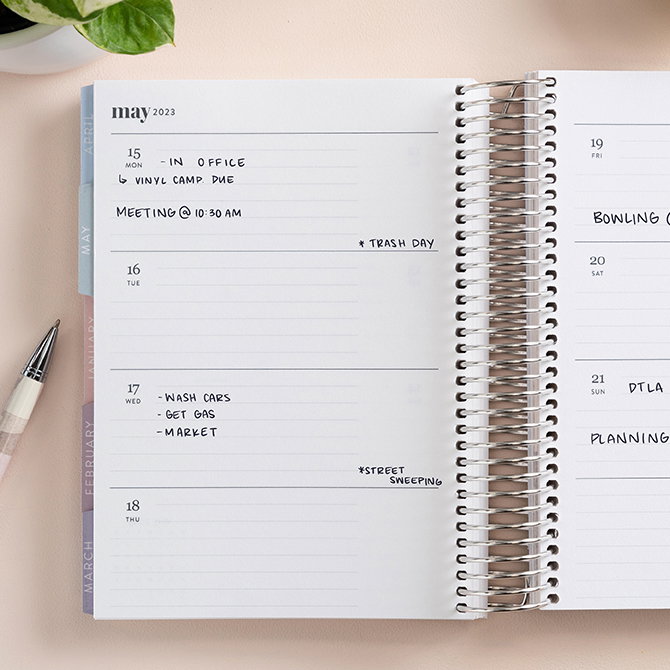 may 2023
15
MON
- IN OFFICE
↳ VINYL CAMP. DUE
MEETING @ 10:30 AM
* TRASH DAY
16
TUE
17
WED
- WASH CARS
- GET GAS
- MARKET
*STREET
SWEEPING
18
THU
19
FRI
BOWLING
20
SAT
21
SUN
DTLA
PLANNING
APRIL
MAY
JANUARY
FEBRUARY
MARCH